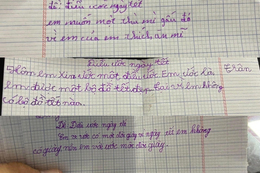 đồ: Điều ước ngày tết
em muốn một thú mì gấu đỏ
vì em của em thích ăn mì
Điều ước ngày tết
Hôm em xin ước một điều ước. Em ước là
em được một bộ đồ tết đẹp. Tại vì em không
có bộ đồ tết năm.
Đề: Điều ước ngày tết
Em ước có một đôi giày vì ngày tết em không
có giày nên em ước một đôi giày.